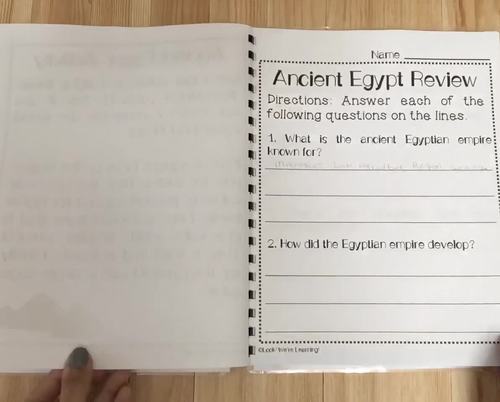 Name
Ancient Egypt Review
Directions: Answer each of the
following questions on the lines.
1. What is the ancient Egyptian empire
known for?
2. How did the Egyptian empire develop?
©Look! We're Learning!